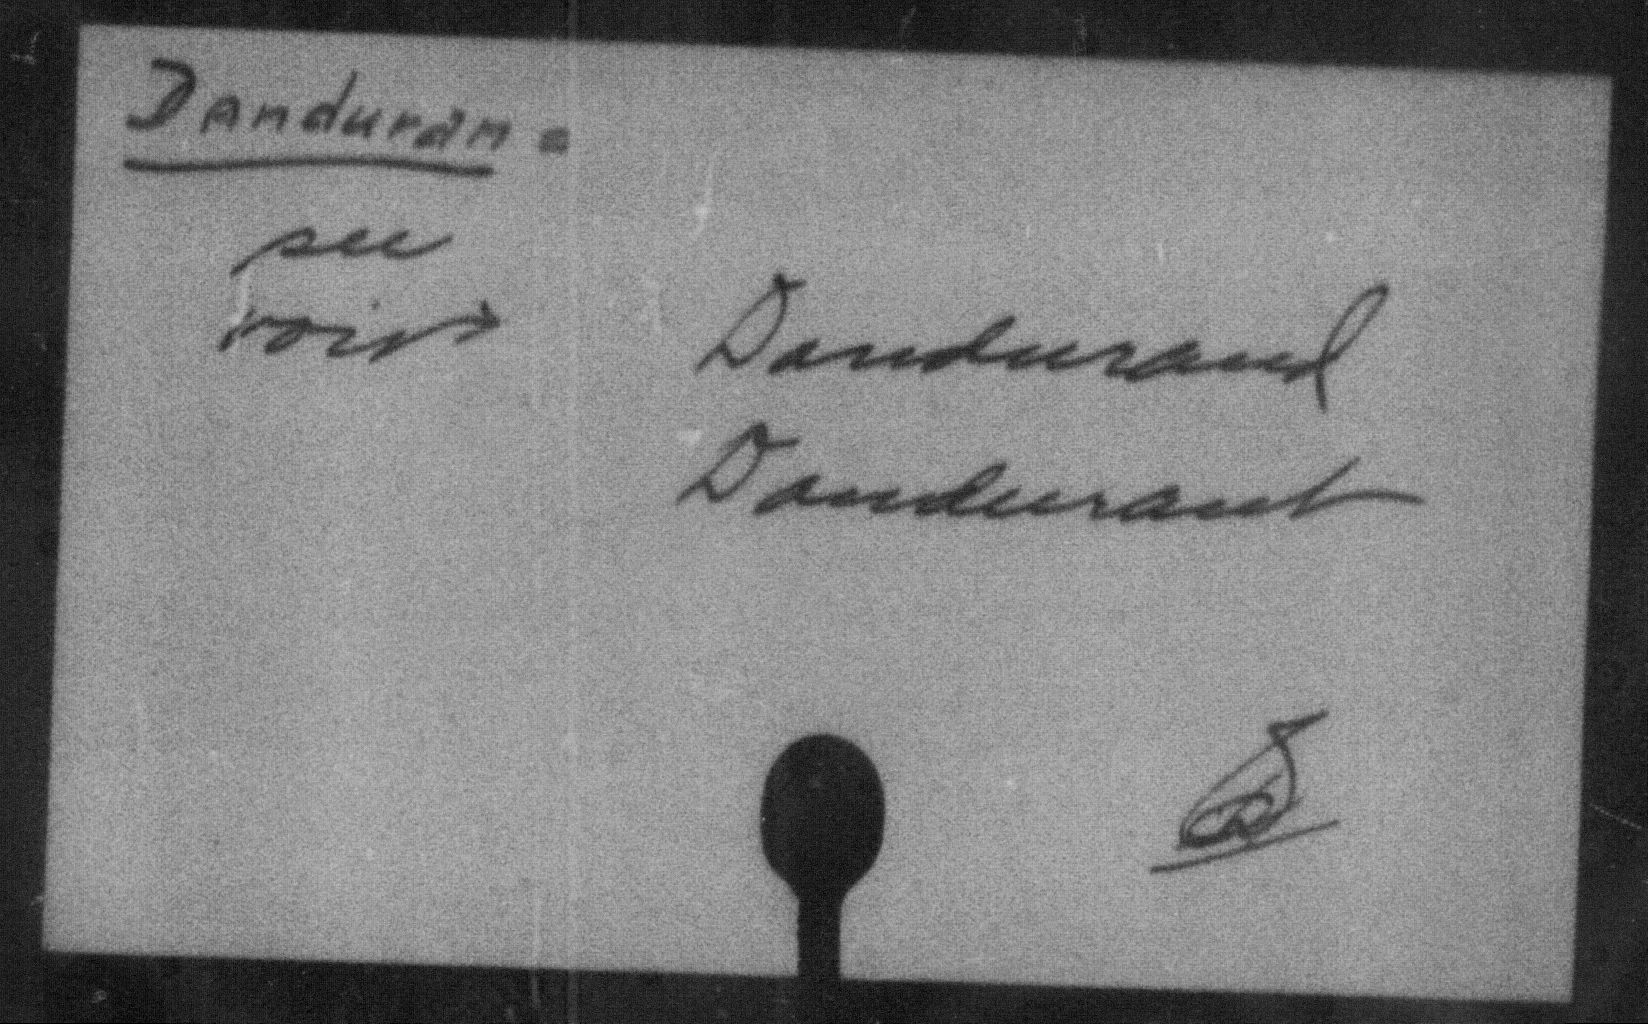 Danduran =
see
voir → Dandurand
Dandurant